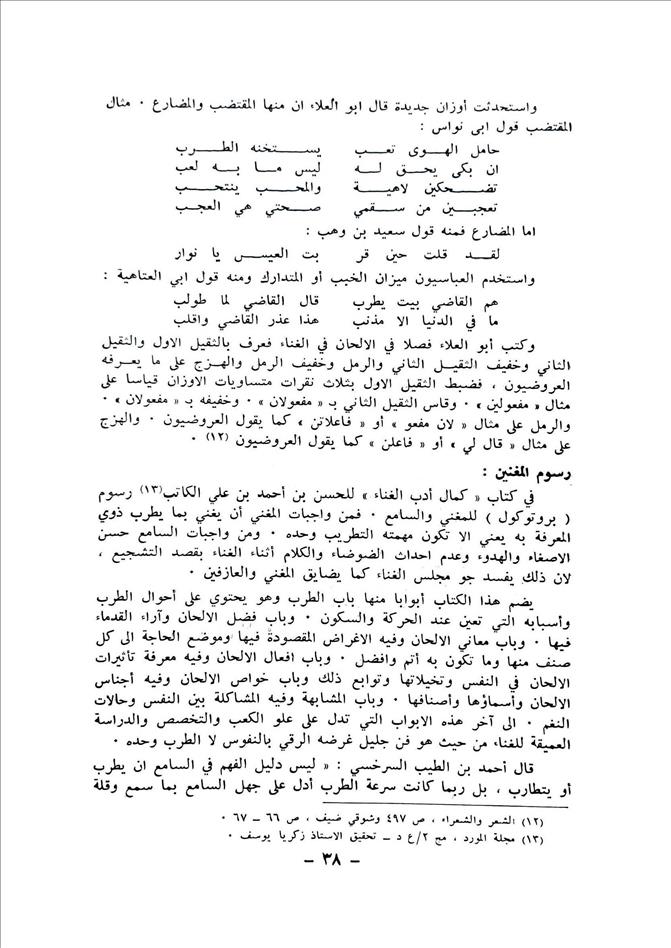 واستحدثت أوزان جديدة قال ابو العلاء ان منها المقتضب والمضارع ٠ مثال
المقتضب قول ابى نواس :
حامل الهـوى تعـب يستخنه الطـرب
ان بكى يحـق لـه ليس مـا بـه لعب
تضـحكين لاهيـة والمحـب ينتحـب
تعجبـين من سـقمي صـحتي هي العجـب
اما المضارع فمنه قول سعيد بن وهب :
لقـد قلت حين قر بت العيـس يا نوار
واستخدم العباسيون ميزان الخبب أو المتدارك ومنه قول ابي العتاهية :
هم القاضي بيت يطرب قال القاضي لما طولب
ما في الدنيا الا مذنب هذا عذر القاضي واقلب
وكتب أبو العلاء فصلا في الالحان في الغناء فعرف بالثقيل الاول والثقيل
الثاني وخفيف الثقيـل الثاني والرمل وخفيف الرمل والهـزج على ما يعـرفه
العروضيون ، فضبط الثقيل الاول بثلاث نقرات متساويات الاوزان قياسا على
مثال « مفعولين » ٠ وقاس الثقيل الثاني بـ « مفعولان » ٠ وخفيفه بـ « مفعولان » ٠
والرمل على مثال « لان مفعو » أو « فاعلاتن » كما يقول العروضيون ٠ والهزج
على مثال « قال لي » أو « فاعلن » كما يقول العروضيون (١٢) ٠
رسوم المغنين :
في كتاب « كمال أدب الغناء » للحسن بن أحمد بن علي الكاتب(١٣) رسوم
( بروتوكول ) للمغني والسامع ٠ فمن واجبات المغني أن يغني بما يطرب ذوي
المعرفة به يعني الا تكون مهمته التطريب وحده ٠ ومن واجبات السامع حسن
الاصغاء والهدوء وعدم احداث الضوضاء والكلام أثناء الغناء بقصد التشجيع ،
لان ذلك يفسد جو مجلس الغناء كما يضايق المغني والعازفين ٠
يضم هذا الكتاب أبوابا منها باب الطرب وهو يحتوي على أحوال الطرب
وأسبابه التي تعين عند الحركة والسكون ٠ وباب فضل الالحان وآراء القدماء
فيها ٠ وباب معاني الالحان وفيه الاغراض المقصودة فيها وموضع الحاجة الى كل
صنف منها وما تكون به أتم وافضل ٠ وباب افعال الالحان وفيه معرفة تأثيرات
الالحان في النفس وتخيلاتها وتوابع ذلك وباب خواص الالحان وفيه أجناس
الالحان وأسماؤها وأصنافها ٠ وباب المشابهة وفيه المشاكلة بين النفس وحالات
النغم ٠ الى آخر هذه الابواب التي تدل على علو الكعب والتخصص والدراسة
العميقة للغناء من حيث هو فن جليل غرضه الرقي بالنفوس لا الطرب وحده ٠
قال أحمد بن الطيب السرخسي : « ليس دليل الفهم في السامع ان يطرب
أو يتطارب ، بل ربما كانت سرعة الطرب أدل على جهل السامع بما سمع وقلة
(١٢) الشعر والشعراء ، ص ٤٩٧ وشوقي ضيف ، ص ٦٦ ــ ٦٧ ٠
(١٣) مجلة المورد ، مج ٢/ع د ــ تحقيق الاستاذ زكريا يوسف ٠
ــ ٣٨ ــ